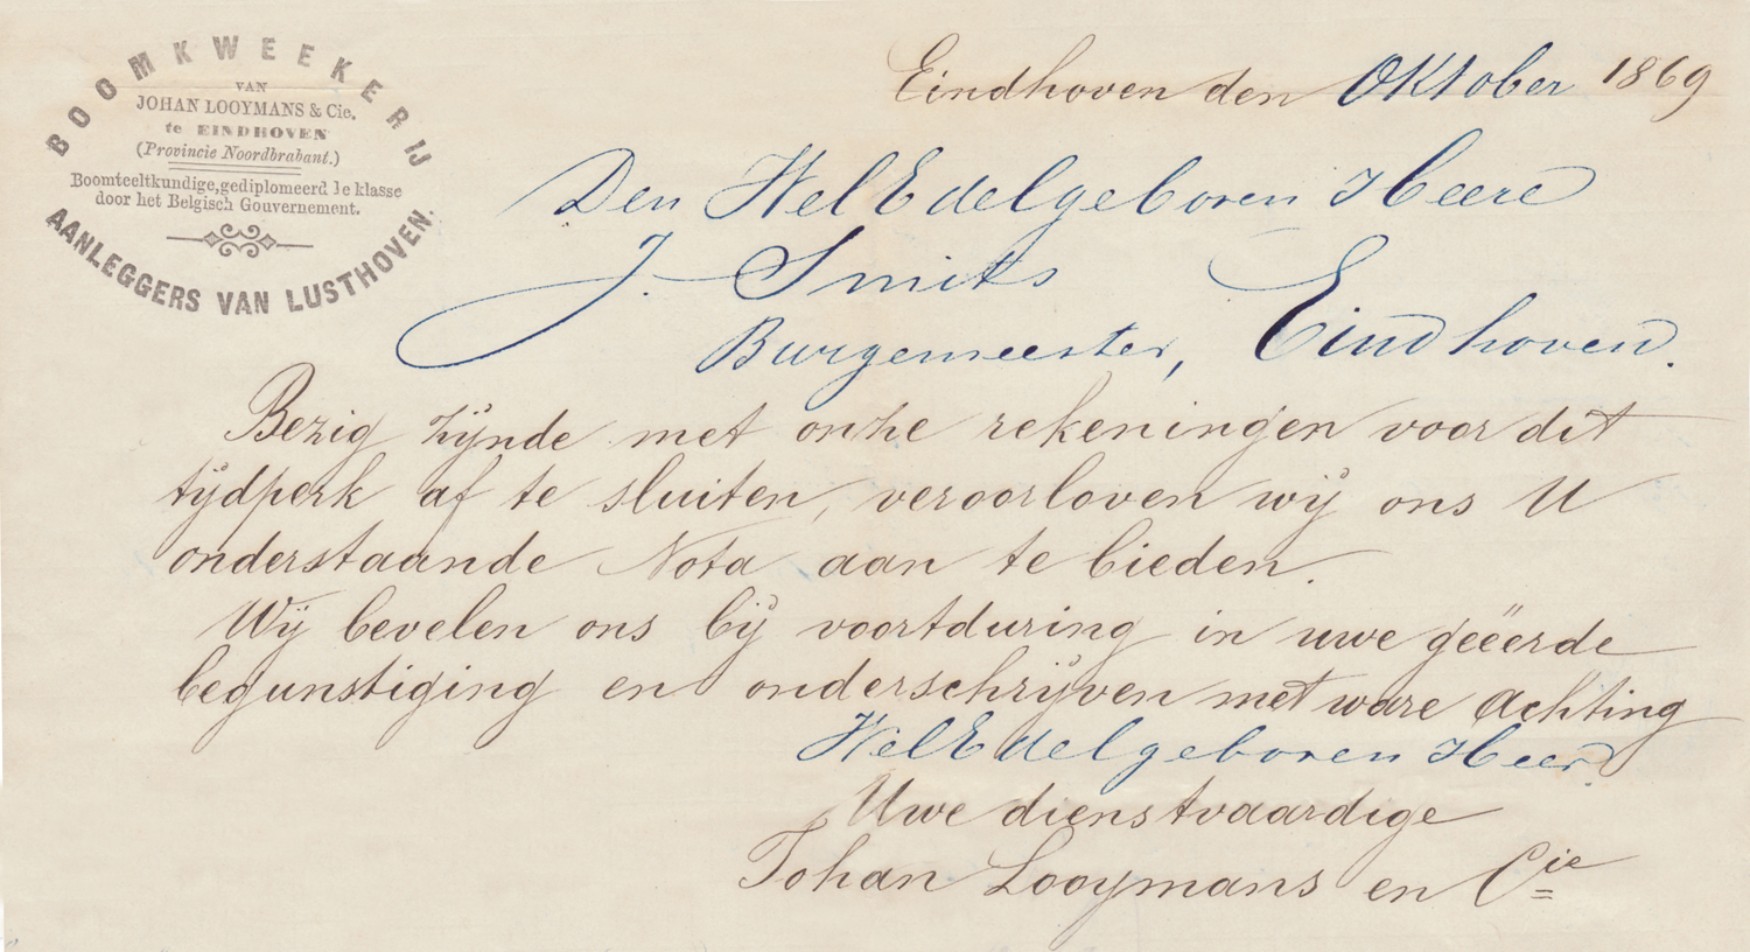 BOOMKWEEKERIJ
VAN
JOHAN LOOYMANS & Cie.
te EINDHOVEN
(Provincie Noordbrabant.)
Boomteeltkundige, gediplomeerd 1e klasse
door het Belgisch Gouvernement.
AANLEGGERS VAN LUSTHOVEN.
Eindhoven den Oktober 1869
Den WelEdelgeboren Heere
J. Smits
Burgemeester, Eindhoven.
Bezig zijnde met onze rekeningen voor dit
tijdperk af te sluiten, veroorloven wij ons U
onderstaande Nota aan te bieden.
Wij bevelen ons bij voortduring in uwe geëerde
begunstiging en onderschrijven met ware achting
WelEdelgeboren Heer.
Uwe dienstvaardige
Johan Looymans en Cie